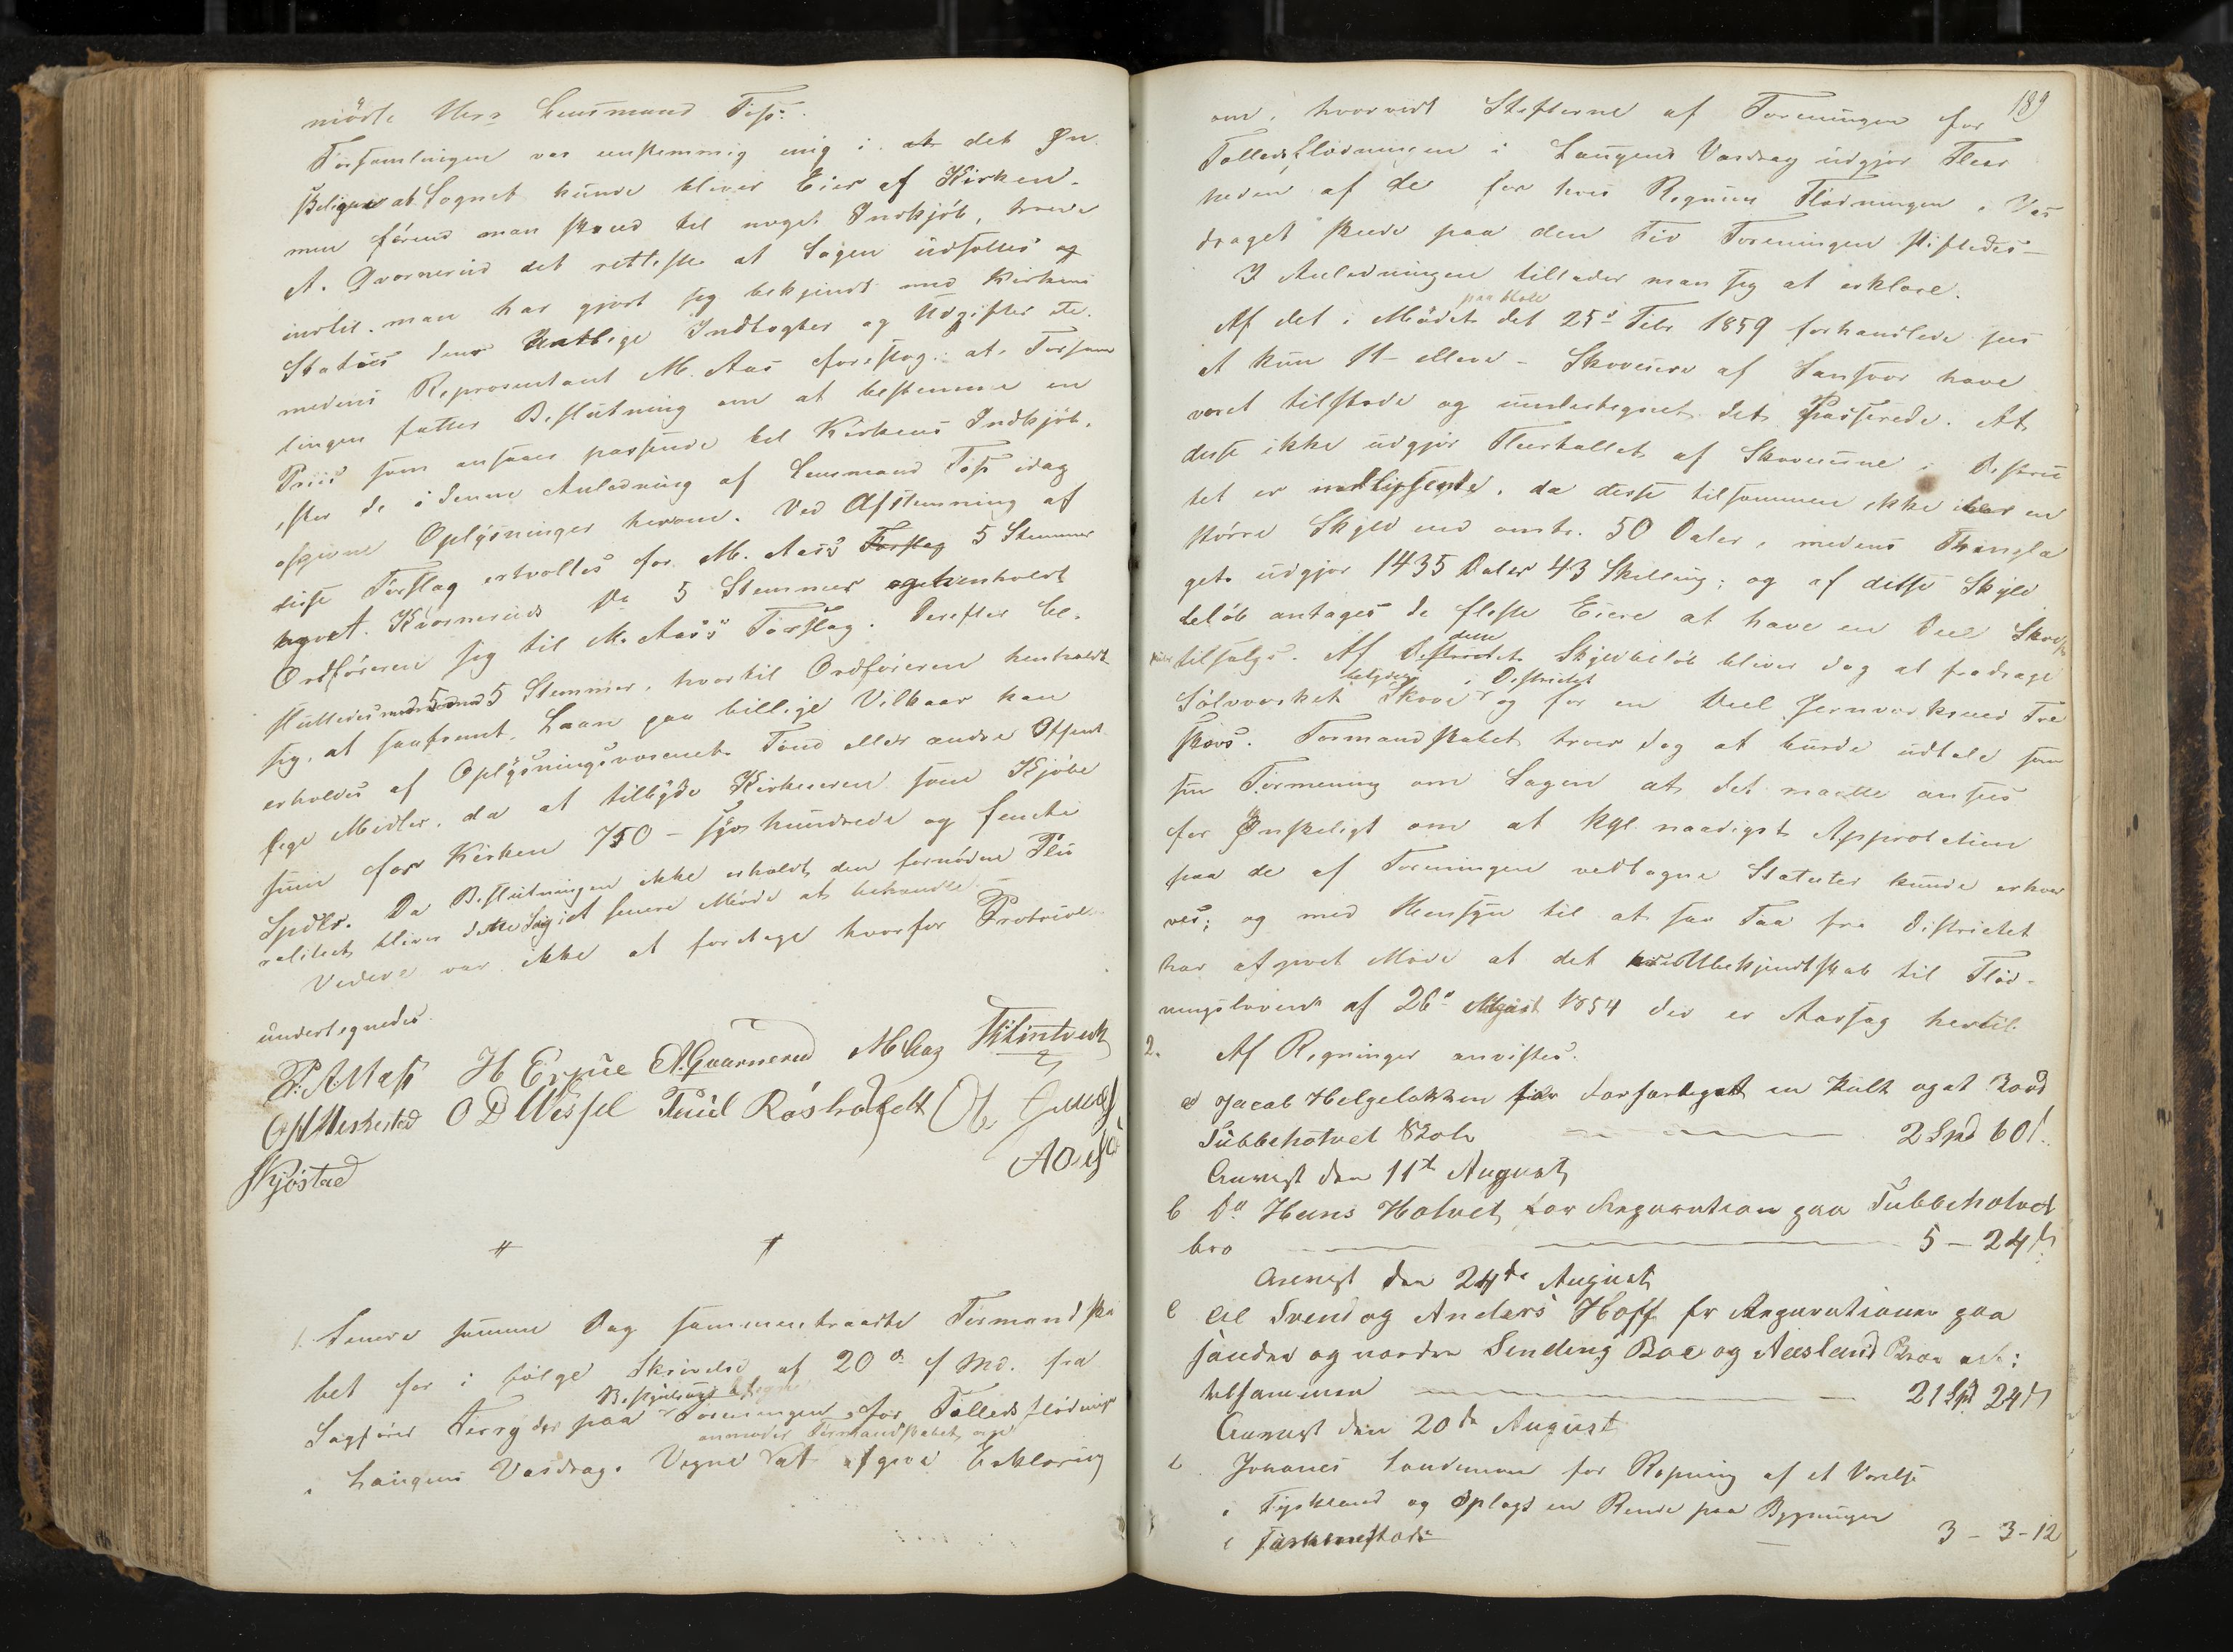 mödte Herr Lensmand Foss.
Forsamlingen var eenstemmig enig i at det Øn-
skeligste at Sognet kunde bliver Eier af Kirken.
men førend man skred til noget Indkjöb, troede
A. Qvarnerud det retteste at Sagen udsattes og
indtil man har gjort sig bekjendt med Kirkens
Status dens Indtægter og Udgifter etc.
medens Repræsentant M. Aas foreslog: at Forsam
lingen fatter Beslutning om at bestemme en
Priis som ansaaes passende til Kirkens Indkjöb,
efter de i denne Anledning af Lensmand Foss idag
afgivne Oplysninger herom. Ved Afstemning af
disse Forslag erholdtes for M. Aas's Forslag 5 Stemmer
5 Stemmer og henholdt
Ordföreren sig til M. Aas's Forslag. Derefter be-
sluttedes med 5 mod 5 Stemmer, hvortil Ordföreren henholdt
sig, at saafremt Laan paa billige Vilkaar kan
erholdes af Oplysningsvæsenets Fond eller andre Offent
lige Midler, da at tilbyde Kirkeeieren som Kjöbe
sum for Kirken 750 – syv hundrede og femti
Spdlr. Da Beslutningen ikke erholdt den fornödne Plu
ralitet bliver denne Sag i et senere Möde at behandle.
Videre var ikke at foretage hvorfor Protocollen
undertegnedes.
H Ernue A. Qvarnerud M Aas
O D Wessel Truls Röshold
Skjöstad
1. Senere samme Dag sammentraadte Formandska
bet for i fölge Skrivelse af 20de f Md. fra
Bestyrelsens
Sagförer paa Foreningen for Fælleds flödning
anmoder Formandskabet om
i Laugens Vasdrags Vegne at afgive Erklæring
189
om, hvorvidt Stifterne af Foreningen for
Fælledsflödningen i Laugens Vasdrag udgjör Fleer
heden af de for hvis Regning Flödningen i Vas
draget skede paa den Tid Foreningen stiftedes –
I Anledningen tillader man sig at erklære.
Af det i Mödet det 25de Febr 1859 forhandlede sees
at kun 11 – elleve – Skoveiere af Sandsvær have
været tilstede og undertegnet det Passerede. At
disse ikke udgjör Fleertallet af Skoveierne i Distric
tet er indlysende, da disse tilsammen ikke har en
större Skyld end omtr. 50 Daler, medens Thinglag
get udgjör 1435 Daler 43 Skilling; og af dette Skyld
belöb antages de fleste Eiere at have en Deel Skov
tilfælgs. Af Districtets Skyldbelöb bliver dog at fradrage
betydelige i Districtet
Sölvværket Skove og for en Deel Jernværkernes Træ
skove. Formandskabet troer dog at burde udtale som
sin Formening om Sagen at det maatte ansees
for Ønskeligt om at kgl. naadigst Approbation
paa de af Foreningen vedtagne Statuter kunde erhver
ves; og med Hensyn til at saa Faa fra Districtet
har afgivet Möde at det Ubekjendtskab til Flöd-
ningsloven af 26de August 1854 der er Aarsag hertil.
2. Af Regninger anvistes.
a Jacob Helgelakken for Forfærdiget en Kult og at
Tubbeholvet 2 Spd 60 s.
Anvist den 11te August
b Do Hans Holvet for Reparation paa Tubbeholvet
bro 5 – 24 s
Anvist den 24de August
c til Svend og Anders Hoff for Reparationer paa
söndre og nordre Sending Broe og Aasland Broe
tilsammen 21 Spd 24 s
Anvist den 20de August
d Johanes Landmann for Rapning af et Værelse
i Tyskland og Oplagt en Rende paa Bygningen
3 – 3 – 12